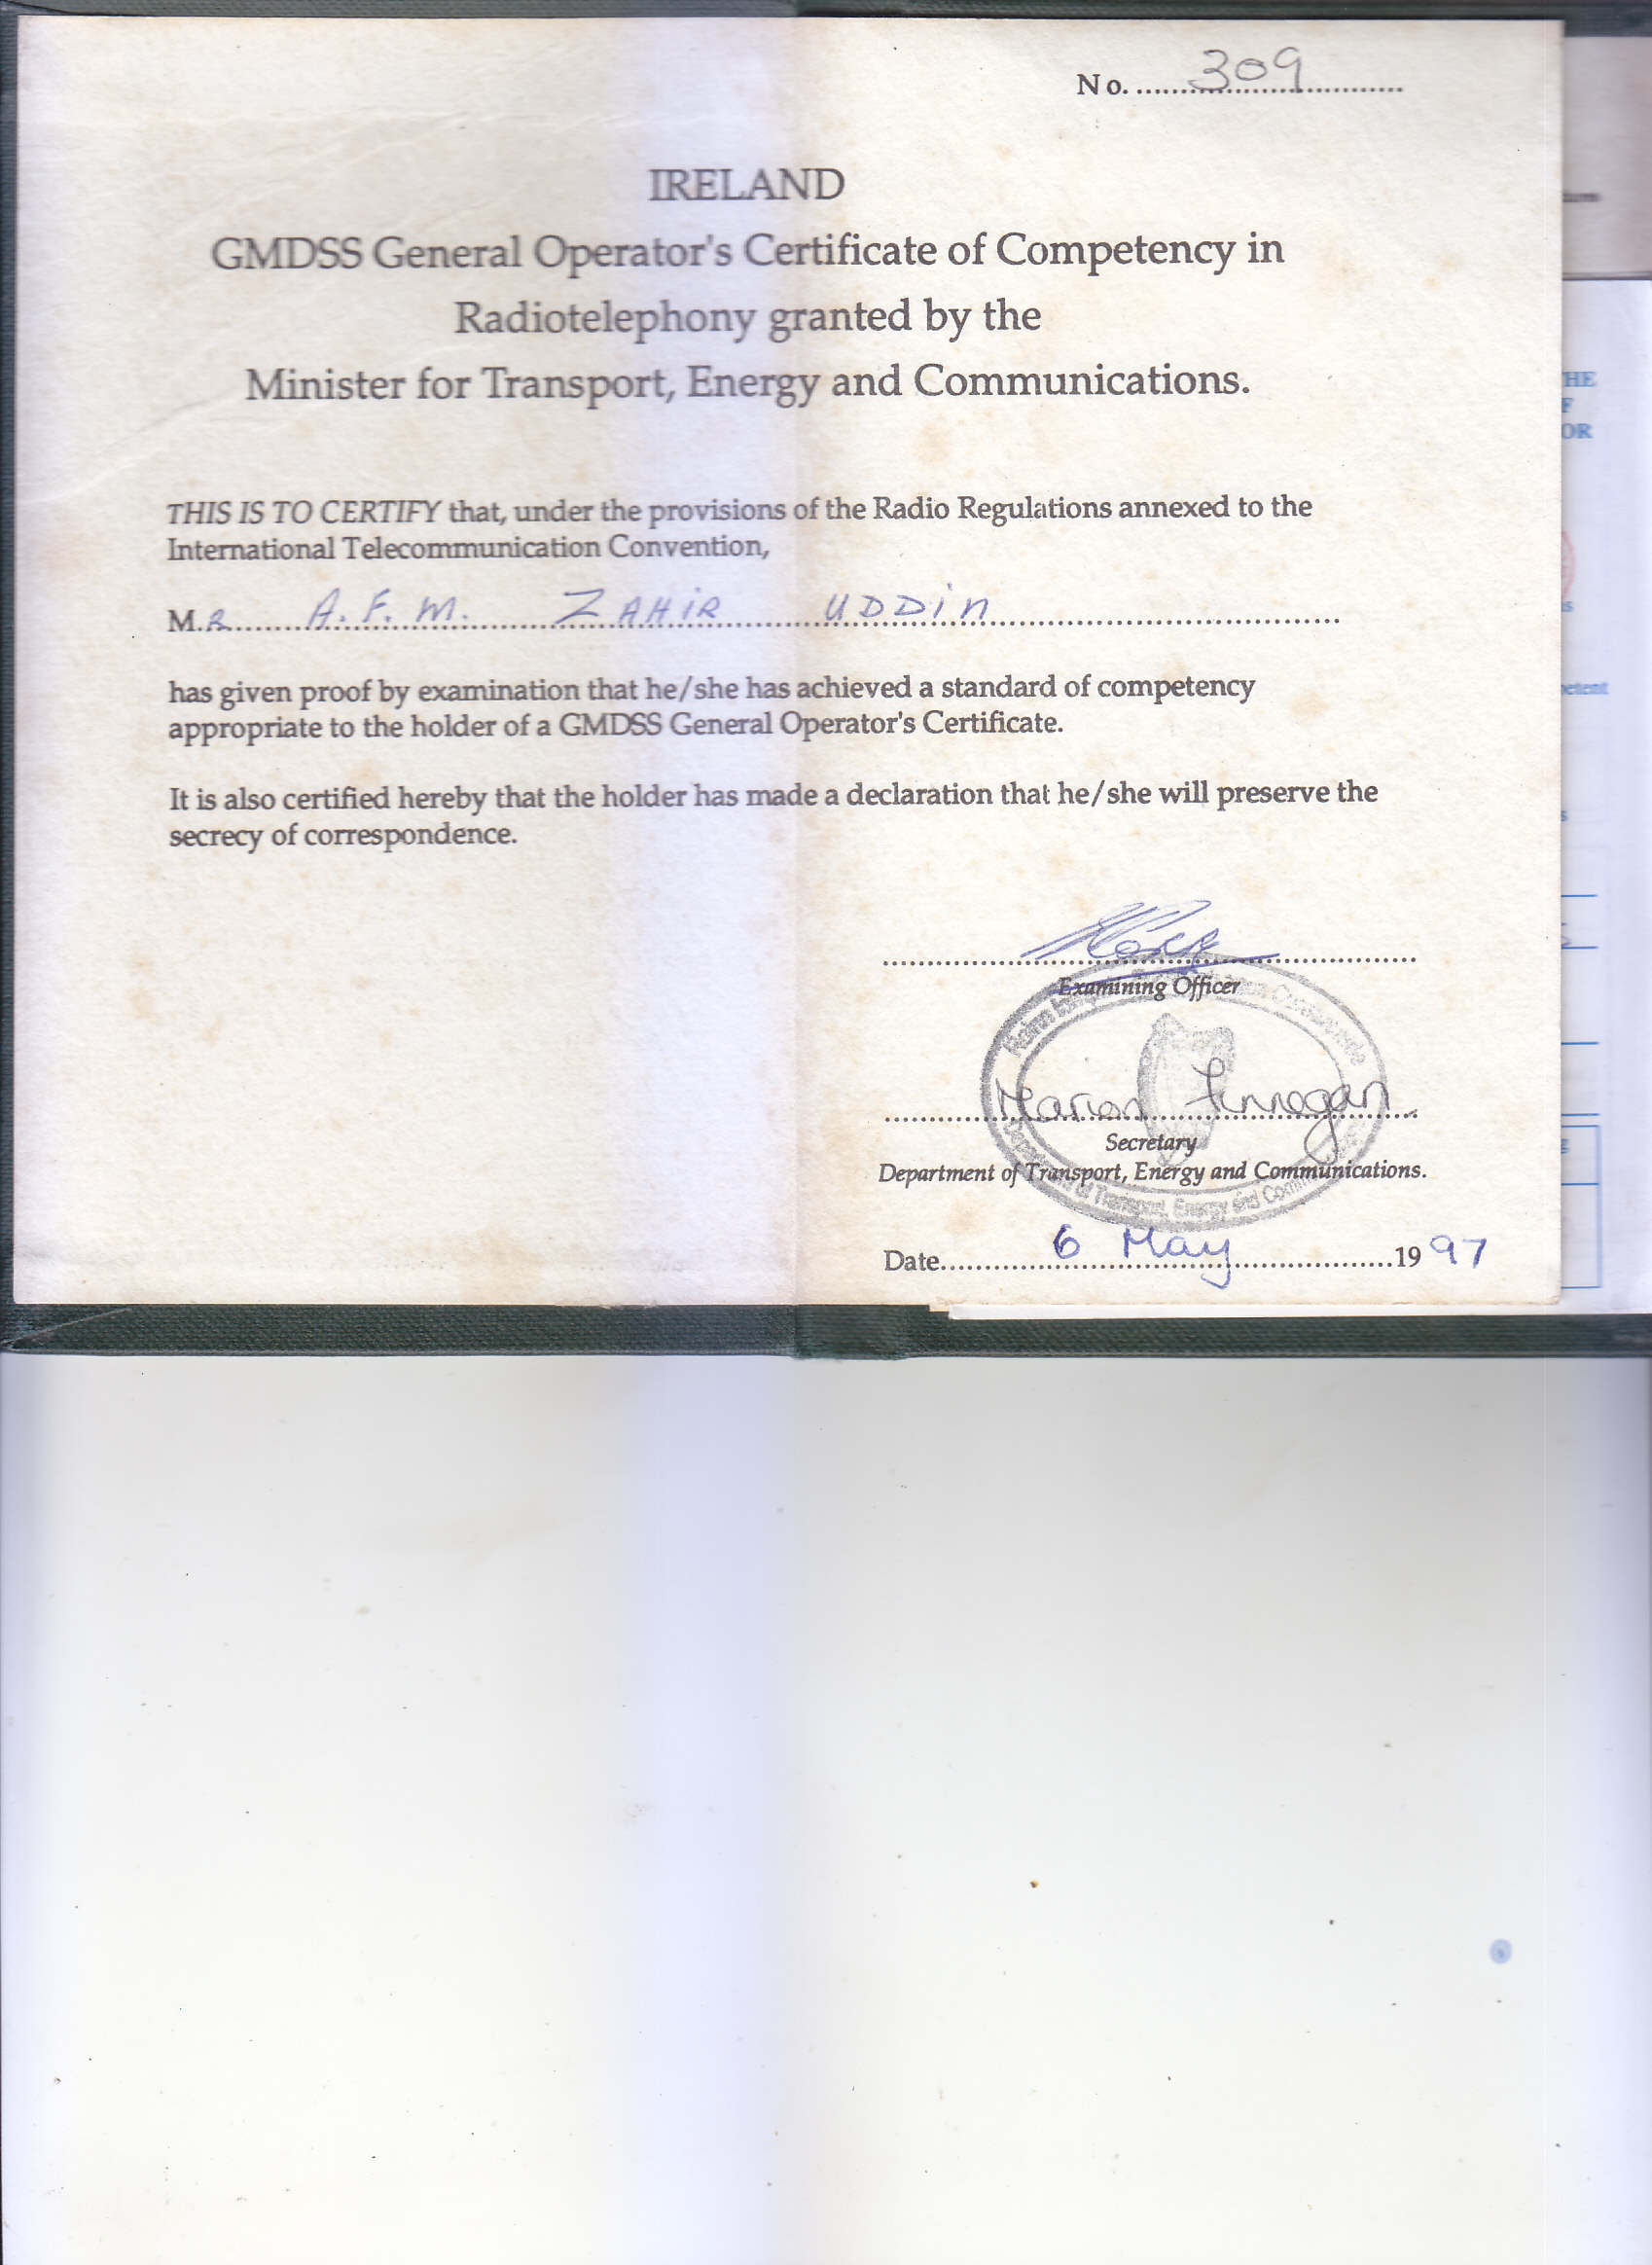 No. 309
IRELAND
GMDSS General Operator's Certificate of Competency in
Radiotelephony granted by the
Minister for Transport, Energy and Communications.
THIS IS TO CERTIFY that, under the provisions of the Radio Regulations annexed to the
International Telecommunication Convention,
MR A.F.M. ZAHIR UDDIN
has given proof by examination that he/she has achieved a standard of competency
appropriate to the holder of a GMDSS General Operator's Certificate.
It is also certified hereby that the holder has made a declaration that he/she will preserve the
secrecy of correspondence.
Examining Officer
Marion Finnegan
Secretary
Department of Transport, Energy and Communications.
Department of Transport, Energy and
Date 6 May 1997
HE
F
OR